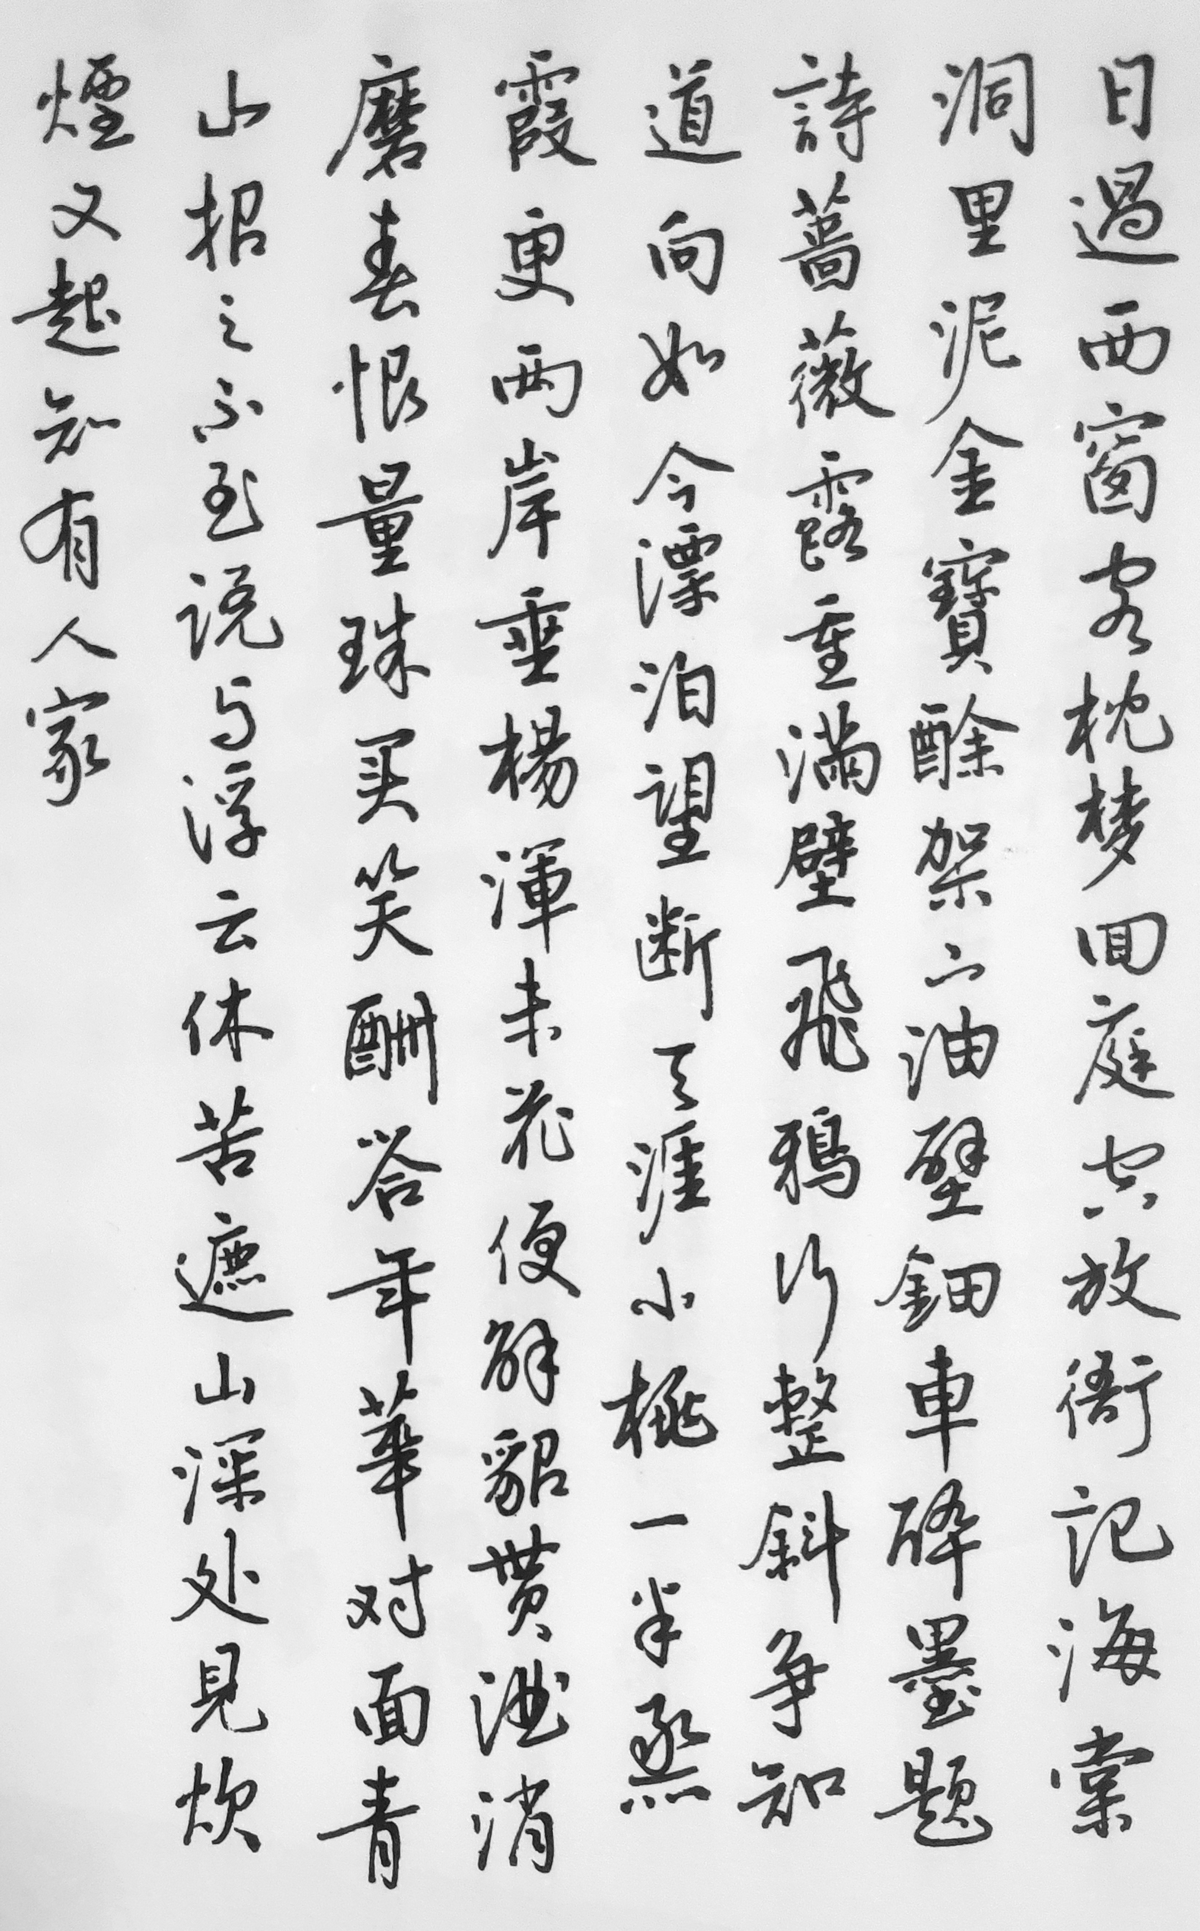 日過西窗客枕梦回庭空放衙記海棠
洞里泥金寶酴架下油壁鈿車醉墨題
詩蔷薇露重滿壁飛鴉行整斜争知
道向如今漂泊望断天涯小桃一半蒸
霞更两岸垂楊渾未花便解貂贳酒消
磨春恨量珠买笑酬答年華对面青
山招之不至说与浮云休苦遮山深处見炊
煙又起知有人家